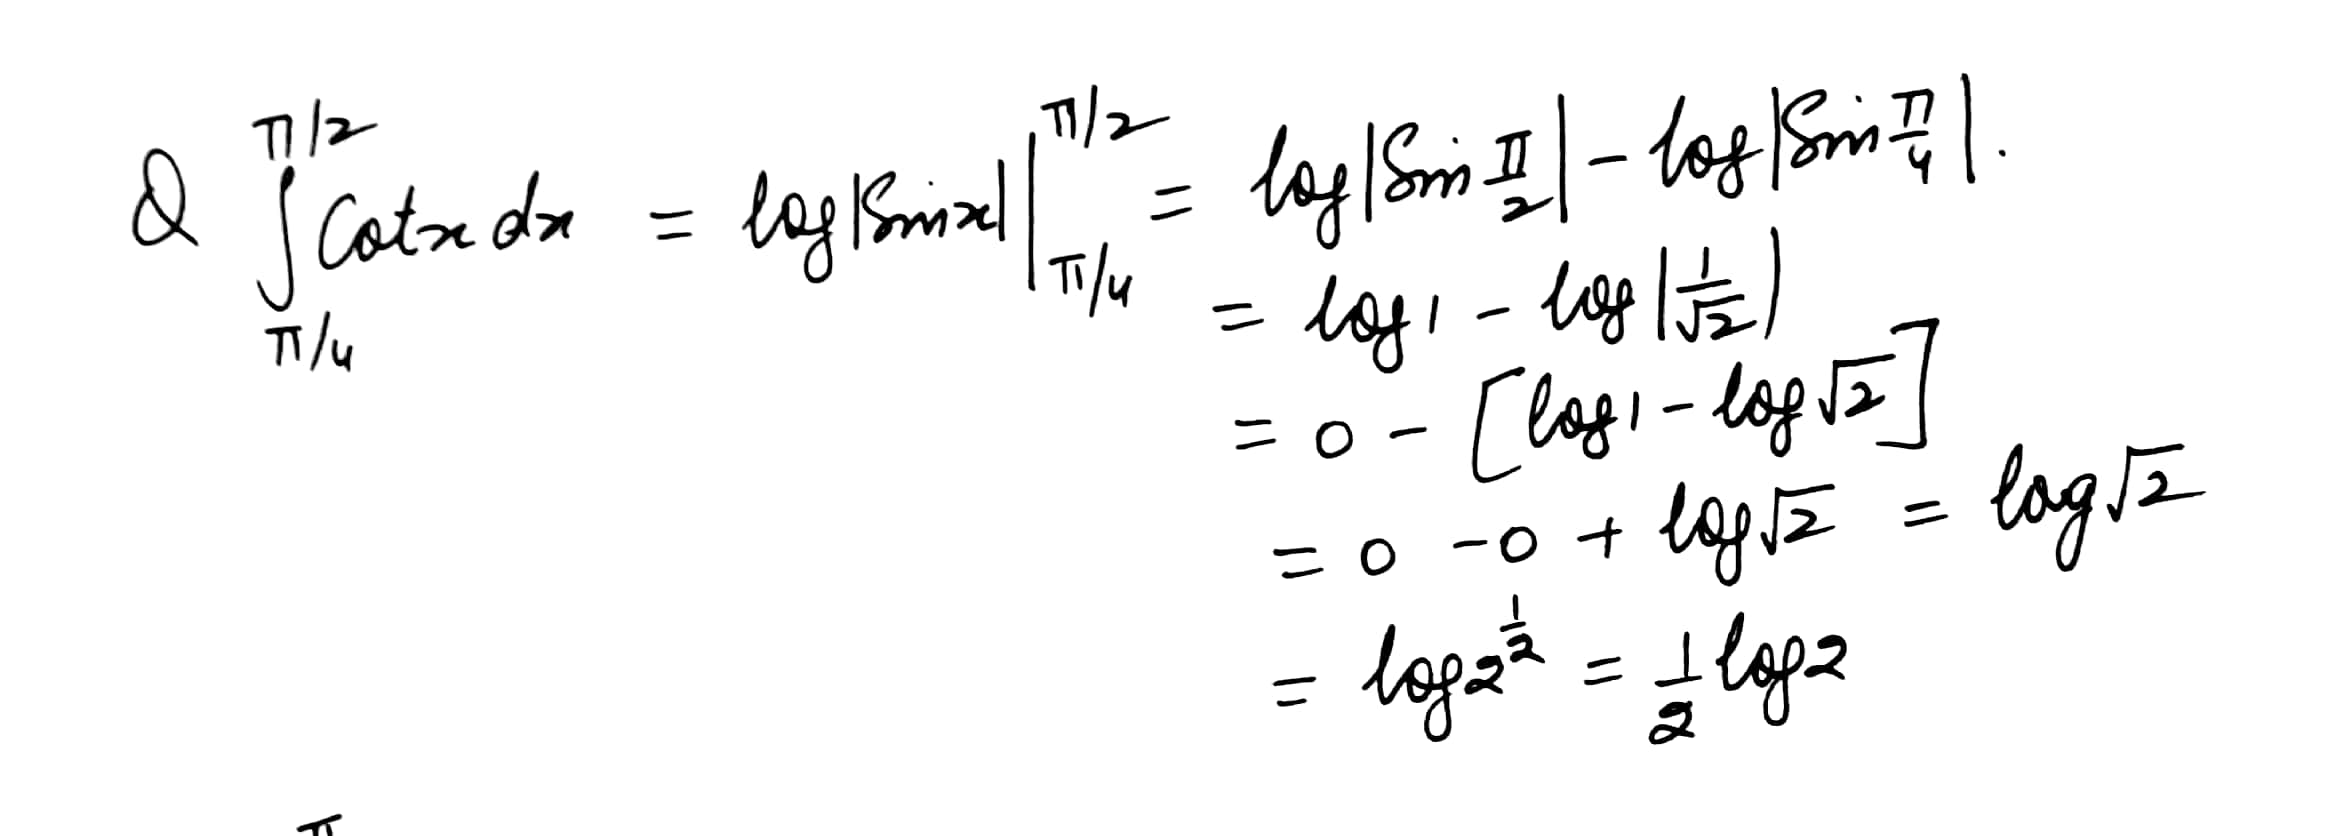 Q ∫_{π/4}^{π/2} Cotx dx = log|Sinx| |_{π/4}^{π/2} = log|Sin π/2| - log|Sin π/4|.
= log1 - log|1/√2|
= 0 - [log1 - log√2]
= 0 - 0 + log√2 = log√2
= log2^{1/2} = 1/2 log2
π